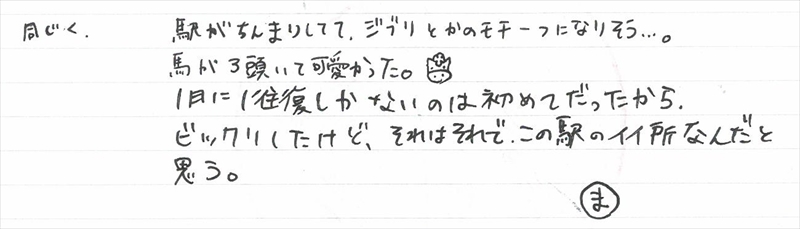 同じく。 駅がちんまりしてて、ジブリとかのモチーフになりそう…。
馬が3頭いて可愛かった。
1日に1往復しかないのは初めてだったから、
ビックリしたけど、それはそれで、この駅のイイ所なんだと
思う。
ま